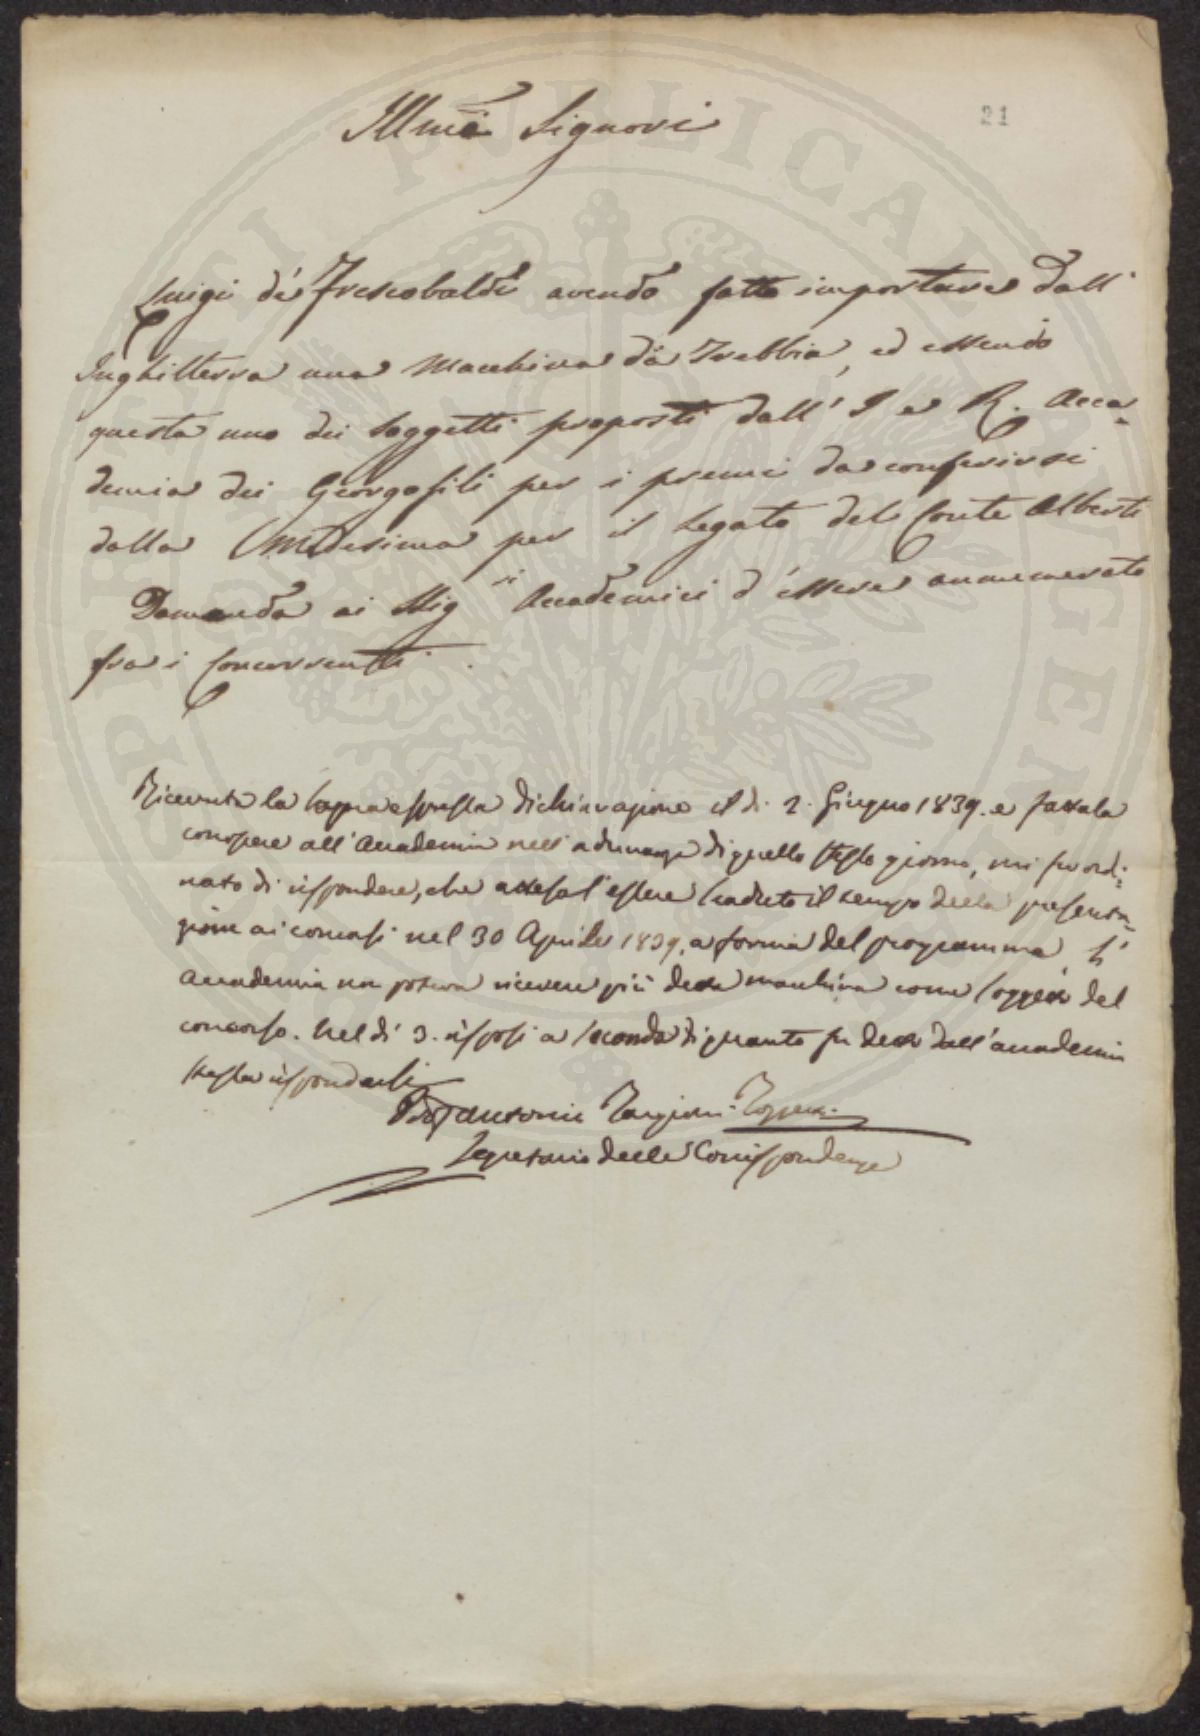 21
Illmi Signori
Luigi de' Frescobaldi avendo fatto importare dall'
Inghilterra una Macchina da Trebbia, ed essendo
questa uno dei Soggetti proposti dall' I e R. Acca-
demia dei Georgofili per i premi da conferirsi
dalla Medesima per il Legato del Conte Alberti
Domanda ai Sigri Accademici d'essere annumerato
fra i Concorrenti.
Ricevuta la sopraespressa dichiarazione il dì. 2. Giugno 1839. e fattala
conoscere all'Accademia nell'adunanza di quello stesso giorno, mi fu ordi-
nato di rispondere, che attesa l'essere scaduto il tempo della presenta-
zione ai concorsi nel 30 Aprile 1839. a forma del programma l'
Accademia non poteva ricevere più detta macchina come soggetto del
concorso. Nel dì 3. risposi a seconda di quanto fu detto dall'accademia
stessa rispondersi
Antonio Targioni-Tozzetti.
Segretario delle Corrispondenze
PUBLICAE